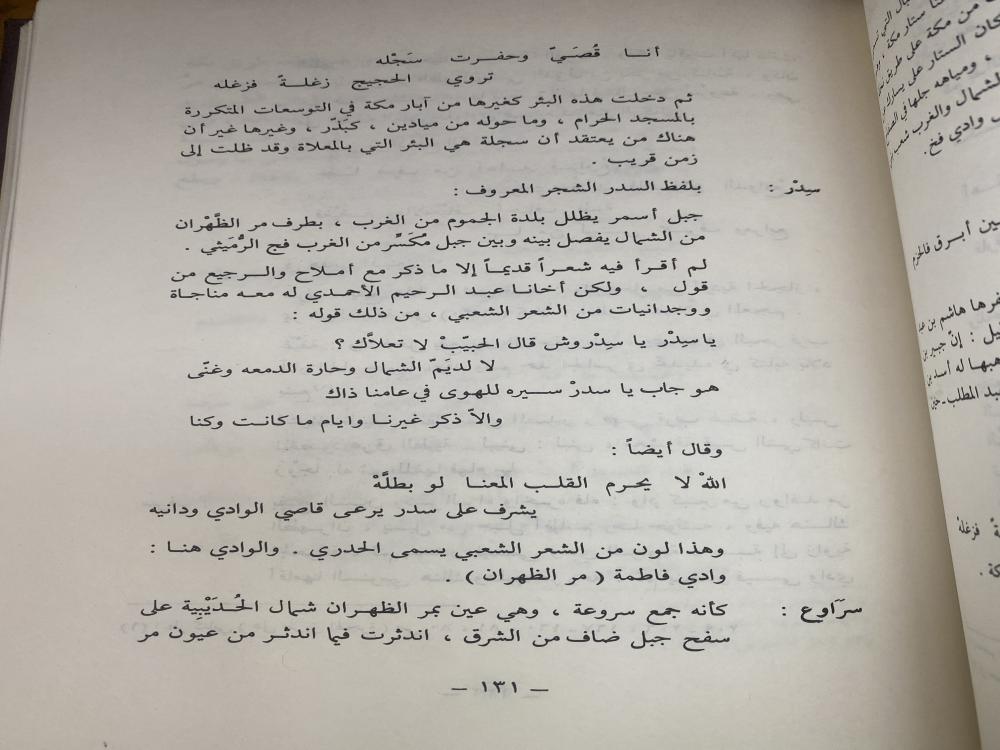 أنا قُصَيّ وحفرت سَجْله
تروي الحجيج زغلةً فزغله
ثم دخلت هذه البئر كغيرها من آبار مكة في التوسعات المتكررة
بالمسجد الحرام ، وما حوله من ميادين ، كبَذّر ، وغيرها غير أن
هناك من يعتقد أن سجلة هي البئر التي بالمعلاة وقد ظلت إلى
زمن قريب .
سِدْر : بلفظ السدر الشجر المعروف :
جبل أسمر يظلل بلدة الجموم من الغرب ، بطرف مر الظَّهْران
من الشمال يفصل بينه وبين جبل مُكَسِّر من الغرب فج الرُّمَيثي .
لم أقرأ فيه شعراً قديماً إلا ما ذكر مع أملاح والرجيع من
قول ، ولكن أخانا عبد الرحيم الأحمدي له معه مناجاة
ووجدانيات من الشعر الشعبي ، من ذلك قوله :
ياسِدْر يا سِدْر وش قال الحبيّبْ لا تعلاَّك ؟
لا لديَمّ الشمال وحارة الدمعه وغنّى
هو جاب يا سدرْ سيره للهوى في عامنا ذاك
والاّ ذكر غيرنا وايام ما كانت وكنا
وقال أيضاً :
اللهْ لا يحرم القلب المعنا لو بطلَّهْ
يشرف على سدر يرعى قاصي الوادي ودانيه
وهذا لون من الشعر الشعبي يسمى الخدري . والوادي هنا :
وادي فاطمة ( مر الظهران ) .
سرَاوع : كأنه جمع سروعة ، وهي عين بمر الظهران شمال الحُدَيْبِية على
سفح جبل ضاف من الشرق ، اندثرت فيما اندثر من عيون مر
— ١٣١ —
من مكة على طريق
الستار على يسارك
، ومياهه جلها في
الشمال والغرب شعب
وادي فخ .
أبرق فالحزم
هاشم بن عبد
: إنّ جبير بن
وهبها له أسد بن
عبد المطلب
فزغلهْ